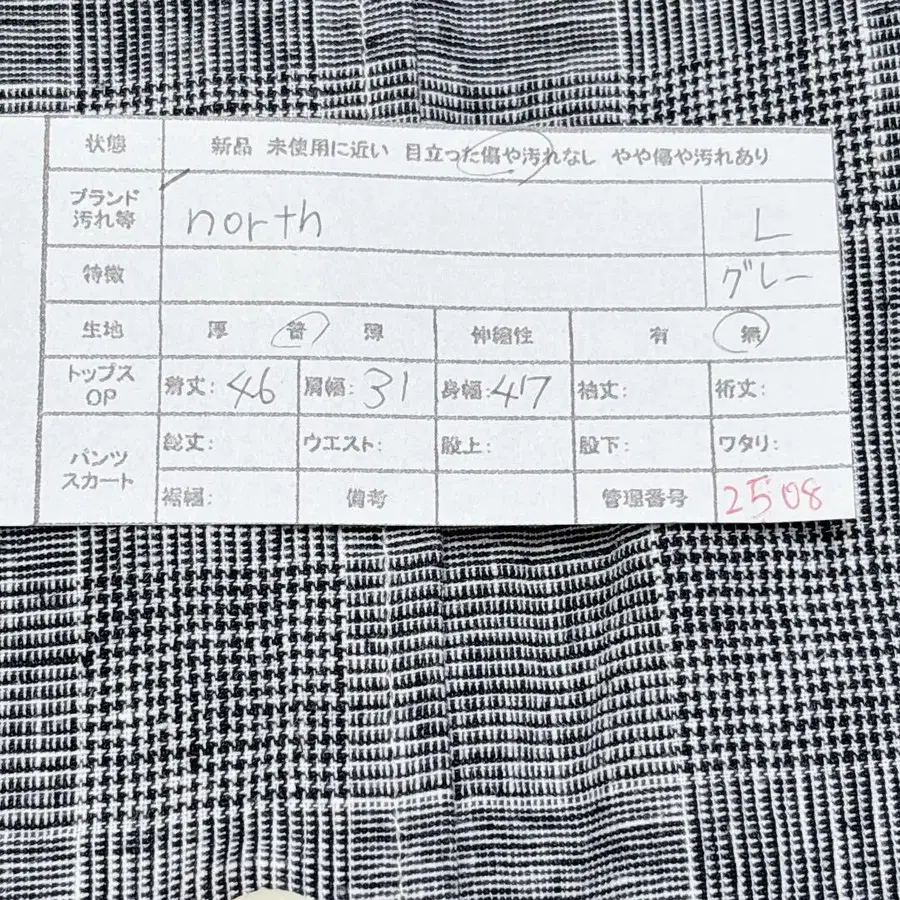 状態 新品 未使用に近い 目立った傷や汚れなし やや傷や汚れあり
ブランド
汚れ等 north L
特徴 グレー
生地 厚 普 薄 伸縮性 有 無
トップス
OP 着丈: 46 肩幅: 31 身幅: 47 袖丈: 裄丈:
パンツ
スカート 総丈: ウエスト: 股上: 股下: ワタリ:
裾幅: 備考 管理番号 2508